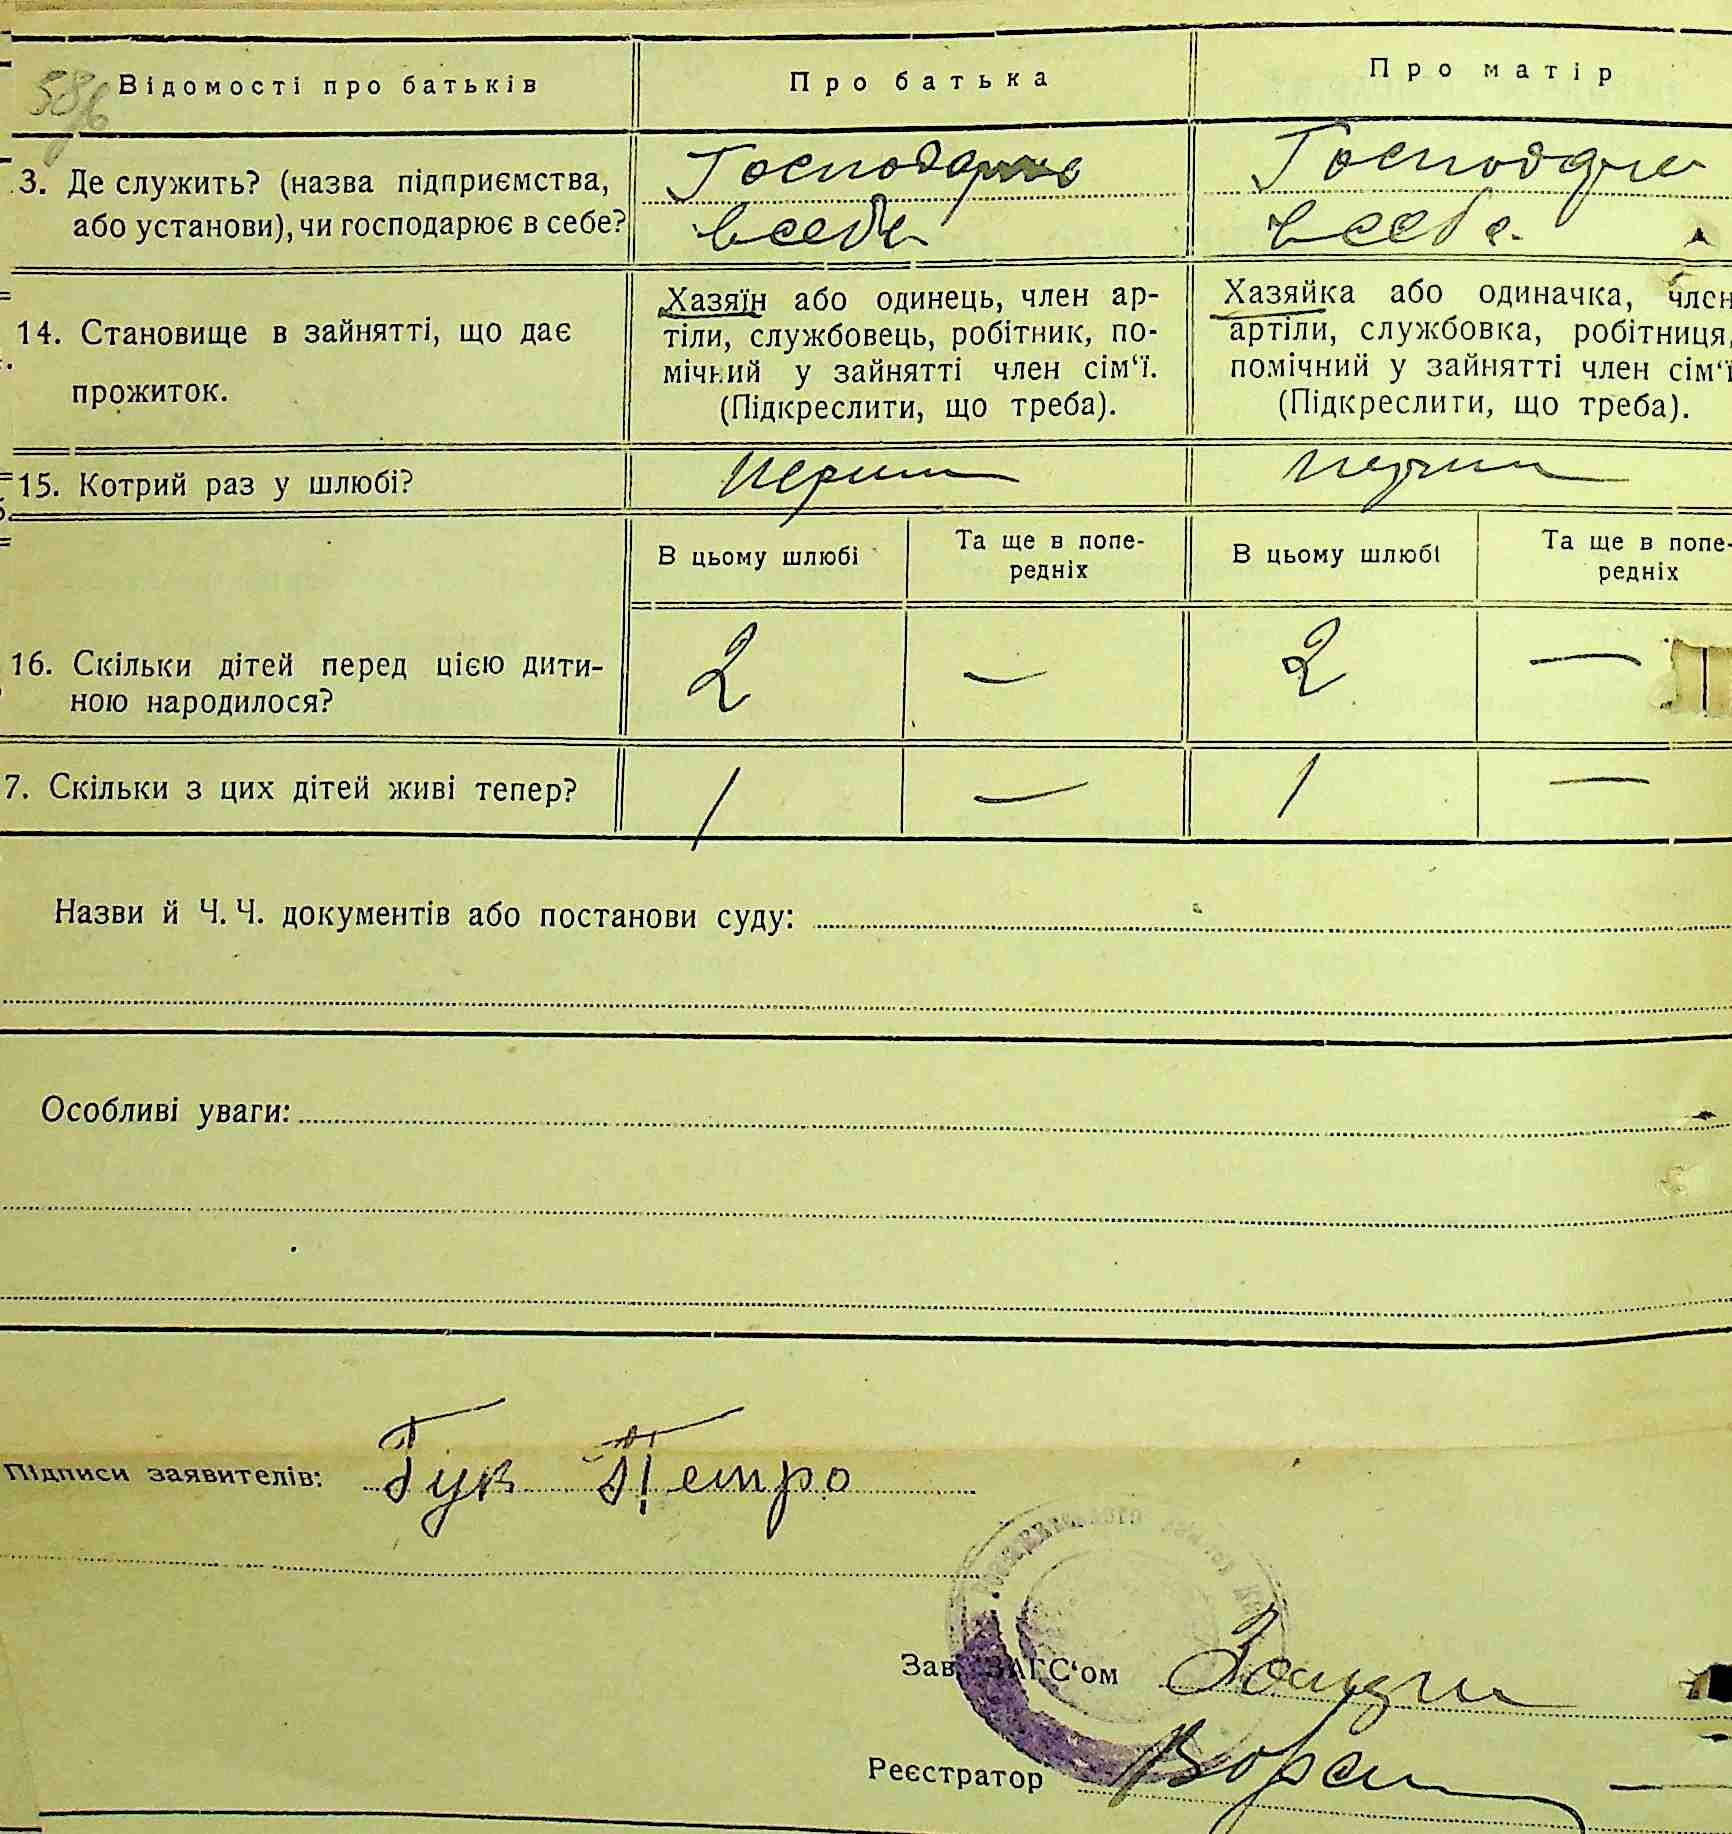 Відомості про батьків
Про батька
Про матір
3. Де служить? (назва підприємства,
або установи), чи господарює в себе?
Господарює
в себе
Господарює
в себе.
14. Становище в зайнятті, що дає
прожиток.
Хазяїн або одинець, член ар-
тіли, службовець, робітник, по-
мічний у зайнятті член сім‘ї.
(Підкреслити, що треба).
Хазяйка або одиначка, член
артіли, службовка, робітниця,
помічний у зайнятті член сім‘ї
(Підкреслити, що треба).
15. Котрий раз у шлюбі?
перший
перший
В цьому шлюбі
Та ще в попе-
редніх
В цьому шлюбі
Та ще в попе-
редніх
16. Скільки дітей перед цією дити-
ною народилося?
2
—
2
—
7. Скільки з цих дітей живі тепер?
1
—
1
—
Назви й Ч. Ч. документів або постанови суду:
Особливі уваги:
Підписи заявителів: Гук Петро
Зав. ЗАГС‘ом
Реєстратор